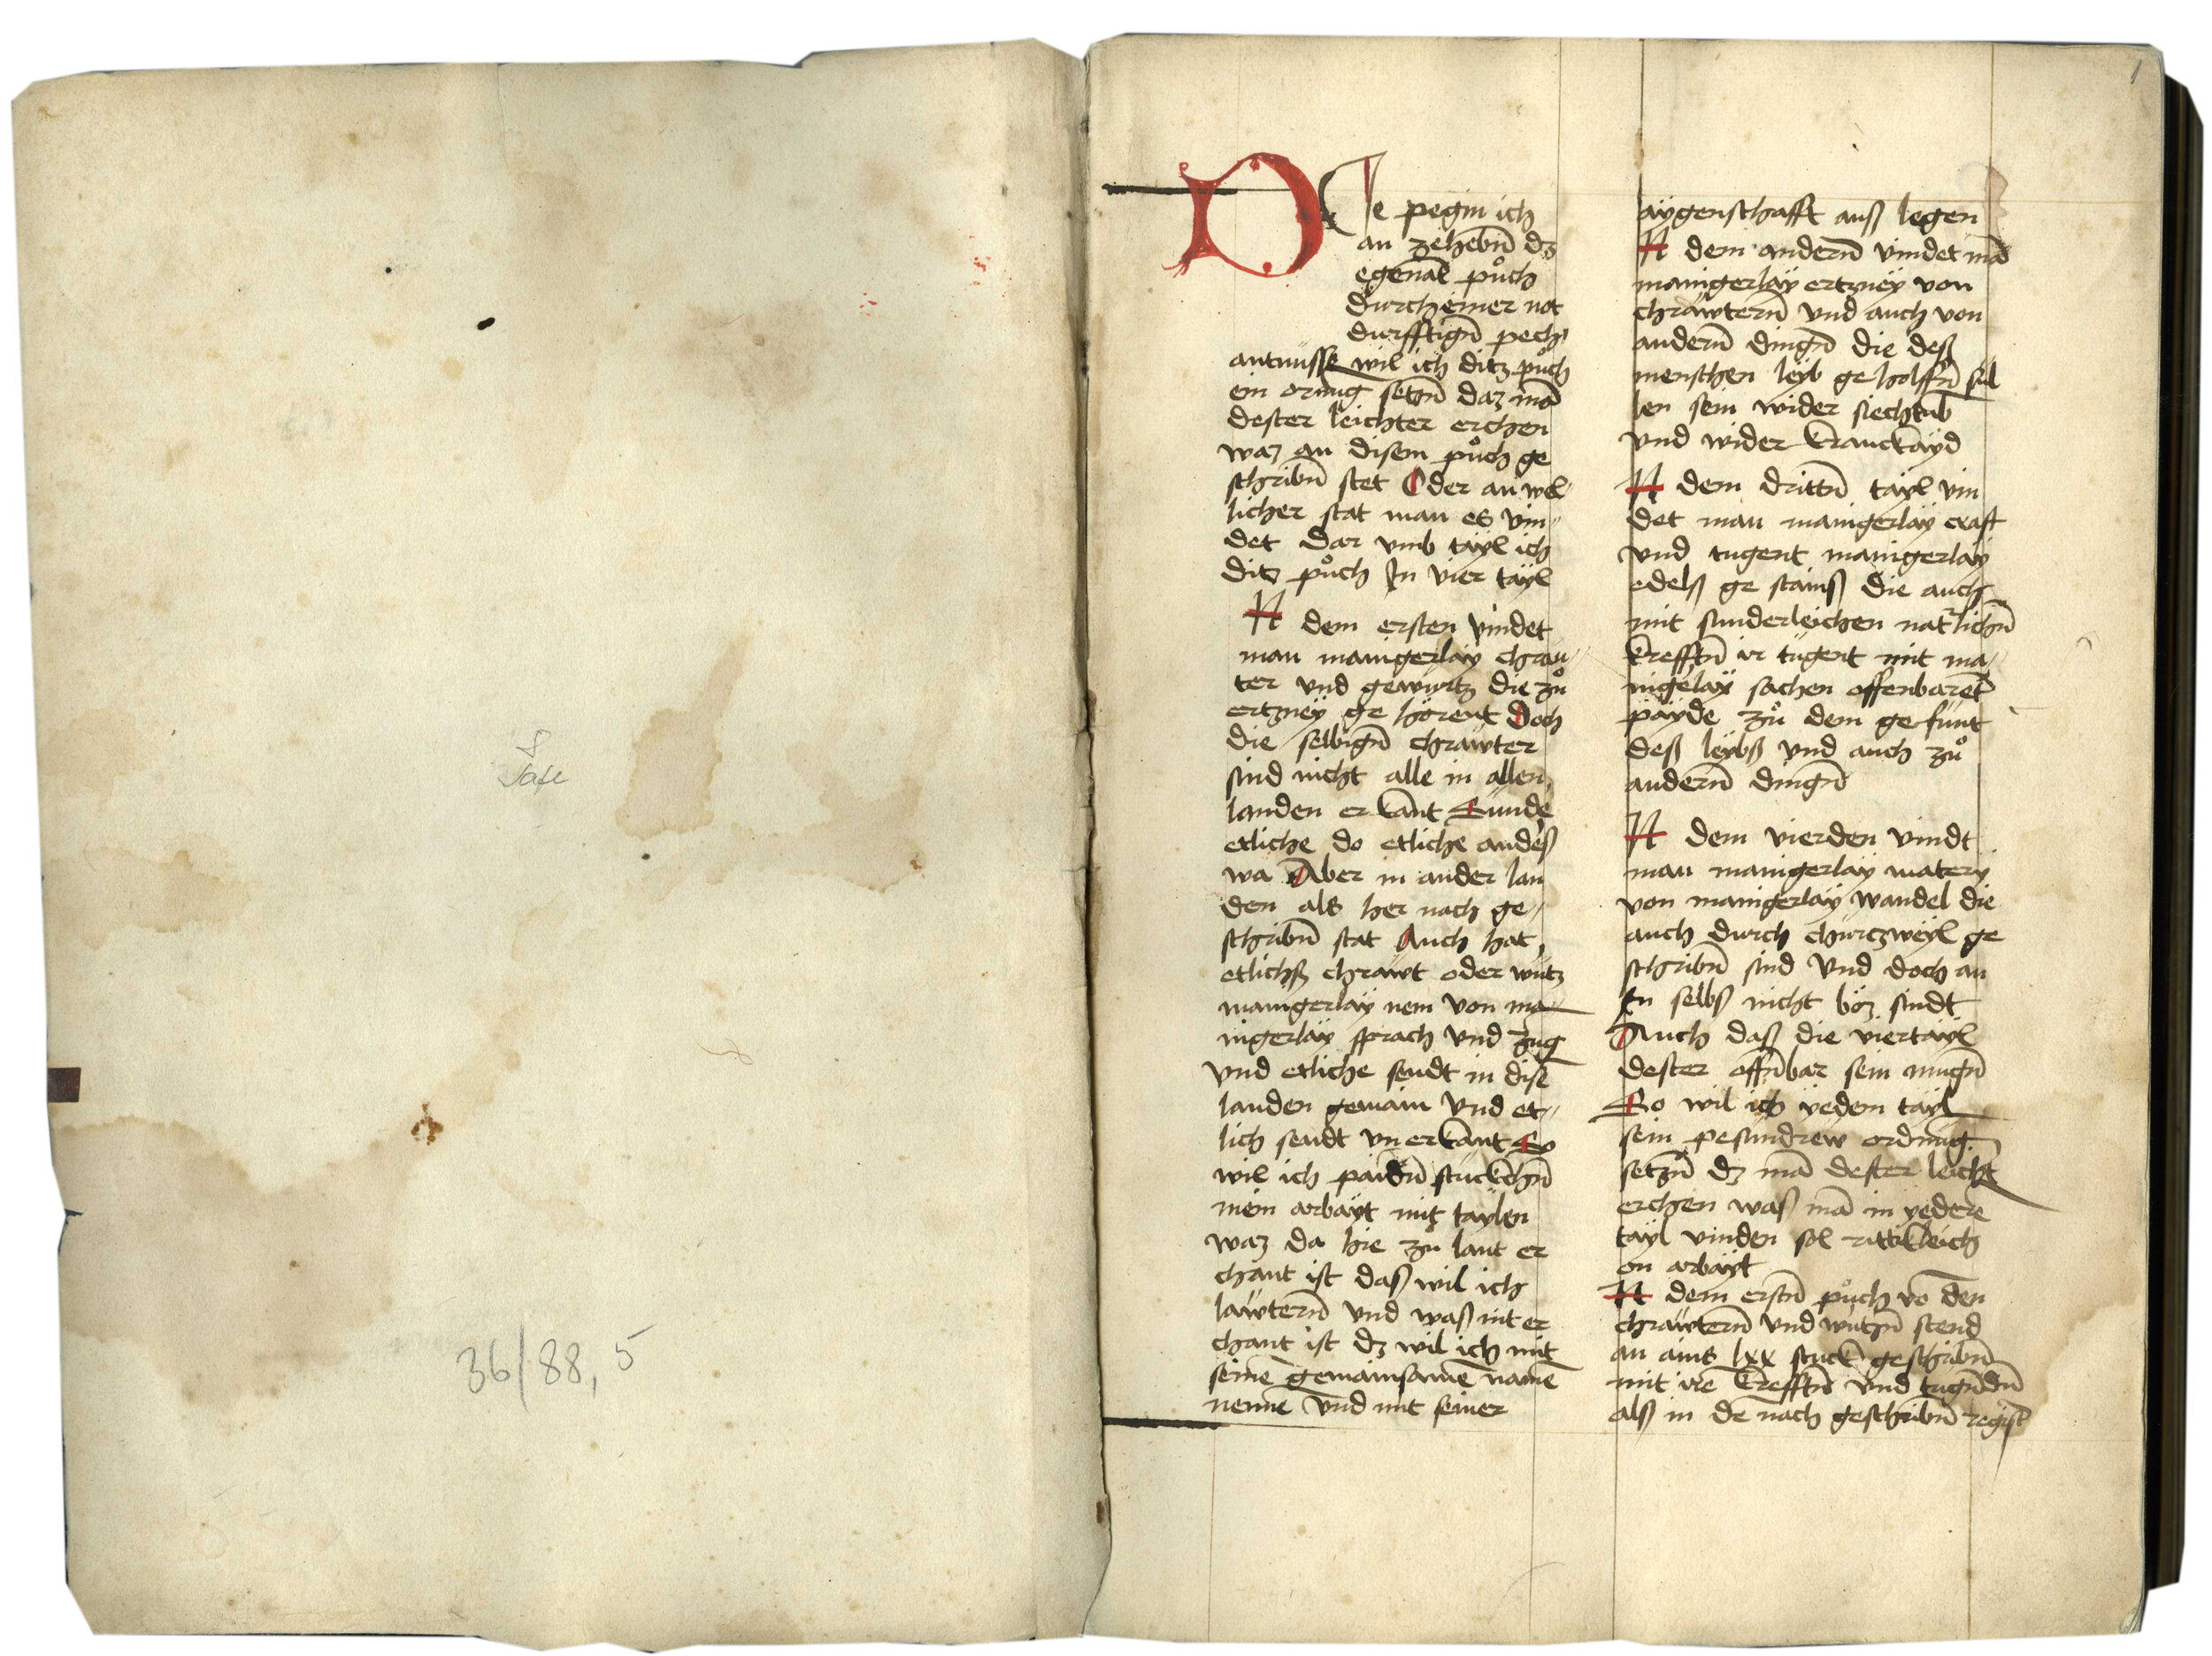 8
Tafe
36/88, 5
1
DIe pegin ich
an zehebn̄ dz
egenāt půch
durch einer not
durfftign̄ pech
antnusse wil ich ditz půch
ein ornūg setzn̄ daz mā
dester leichter erchen
waz an disem půch ge
schribn̄ stet Oder an wel
licher stat man es vin
det Dar vmb täyl ich
ditz půch In vier täyl
N dem ersten vindet
man manigerläy chrau
ter vnd gewürtz die zů
ertzney ge hörent Doch
die selbign̄ chräwter
sind nicht alle in allen
landen er kānt Sunde
etliche do etliche anders
wa Aber in ander lan
den als her nach ge
schribn̄ stat Auch hat
etlichß chräwt oder wurtz
manigerläy nem von ma
nigerläy sprach vnd zūg
vnd etliche sendt in dise
landen gemain vnd et
lich sendt vnerkānt So
wil ich paidn̄ stuckchn̄
mein arbäyt mit täylen
waz da hie zů lant er
chant ist daß wil ich
läwtern̄ vnd waß nit er
chant ist dz wil ich mit
seinē gemainsamē namē
nennē vnd mit seiner
äygenschafft auß legen
N dem andern̄ vindet mā
manigerläy ertzney von
chräwtern̄ vnd auch von
andern̄ dingn̄ die deß
menschen leyb ge holffn̄ sül
len sein wider siechtub
vnd wider kranckäyd
N dem drittn̄ täyl vin
det man manigerläy craft
vnd tugent manigerläy
edelß ge stainß die auch
mit sunderleichen natrlichn̄
krefftn̄ ir tugent mit ma
nigeläy sachen offenbarēt
päyde zů dem ge sünt
deß leybß vnd auch zů
andern̄ dingn̄
N dem vierden vindt
man manigerläy matery
von manigerläy wandel die
auch durch churczweyl ge
schribn̄ sind Vnd doch an
In selbß nicht böz sindt
Auch daß die viertäyl
dester offn̄bar sein mügn̄
So wil ich yedem täyl
sein pesundrew ordnūg
setzn̄ dz mā dester leicht
erchen waß mā in yedere
täyl vinden sol
on arbäyt
N dem erstn̄ půch vō den
chräwtern̄ vnd wurtzn̄ stend
an ains lxx stuck geschribn̄
mit ire krefftn̄ vnd tugn̄dn̄
alß in dē nach geschribn̄ regist